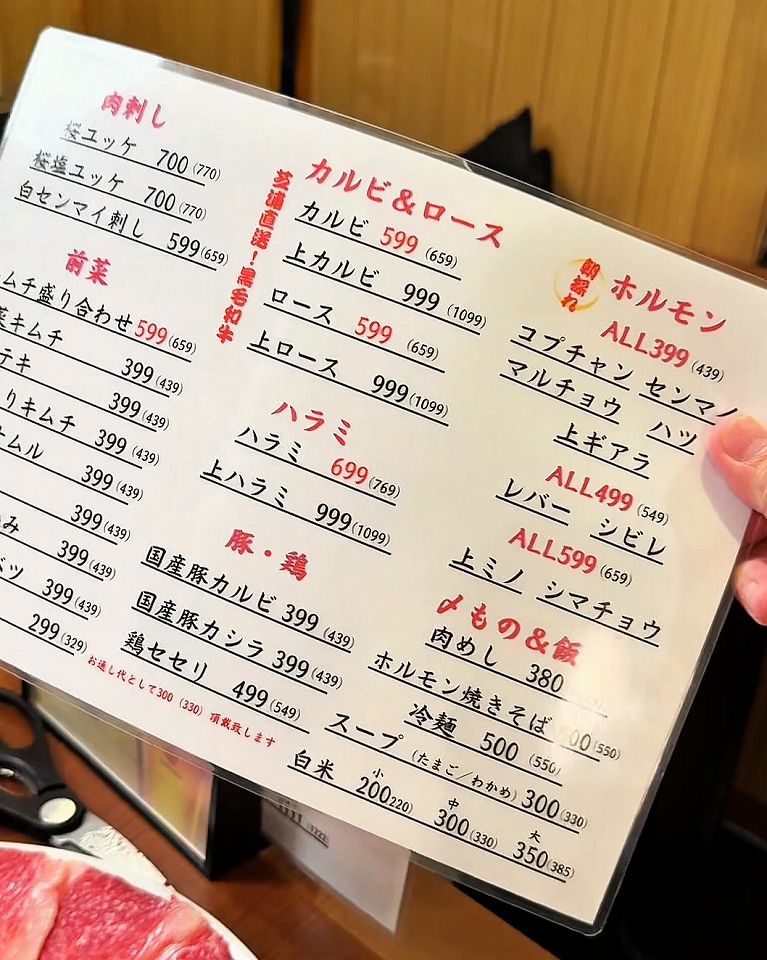 肉刺し
桜ユッケ 700(770)
桜塩ユッケ 700(770)
白センマイ刺し 599(659)
前菜
ムチ盛り合わせ 599(659)
菜キムチ 399(439)
テキ 399(439)
りキムチ 399(439)
ナムル 399(439)
399(439)
み 399(439)
ベツ 399(439)
299(329)
お通し代として300(330)頂戴致します
芝浦直送!黒毛和牛
カルビ&ロース
カルビ 599(659)
上カルビ 999(1099)
ロース 599(659)
上ロース 999(1099)
ハラミ
ハラミ 699(769)
上ハラミ 999(1099)
豚・鶏
国産豚カルビ 399(439)
国産豚カシラ 399(439)
鶏セセリ 499(549)
朝採れ
ホルモン
ALL399(439)
コプチャン センマイ
マルチョウ ハツ
上ギアラ
ALL499(549)
レバー シビレ
ALL599(659)
上ミノ シマチョウ
〆もの&飯
肉めし 380
ホルモン焼きそば 00(550)
冷麺 500(550)
スープ(たまご/わかめ)300(330)
白米 小200(220) 中300(330) 大350(385)